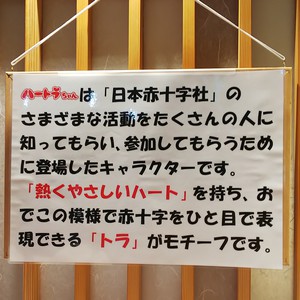 ハートラちゃんは「日本赤十字社」の
さまざまな活動をたくさんの人に
知ってもらい、参加してもらうため
に登場したキャラクターです。
「熱くやさしいハート」を持ち、お
でこの模様で赤十字をひと目で表
現できる「トラ」がモチーフです。